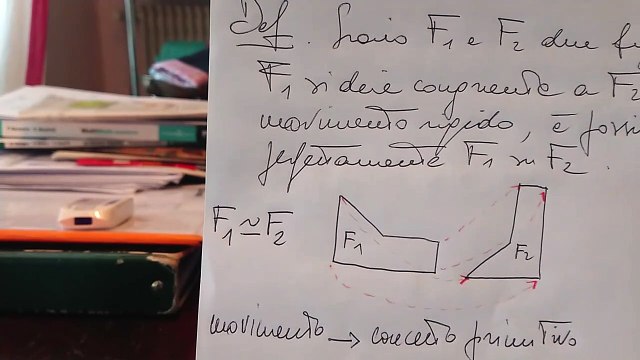 Def. Siano F₁ e F₂ due
F₁ si dice congruente a F₂
movimento rigido, è
perfettamente F₁ su F₂.
F₁ ≅ F₂
F₁
F₂
movimento → concetto primitivo